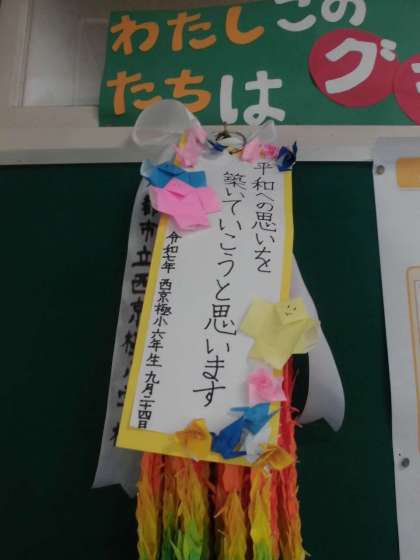 わたし
たちは
この
グ
平和への思いを
築いていこうと思います
令和七年 西京極小 六年生 九月二十四日
都市立西京極小学校